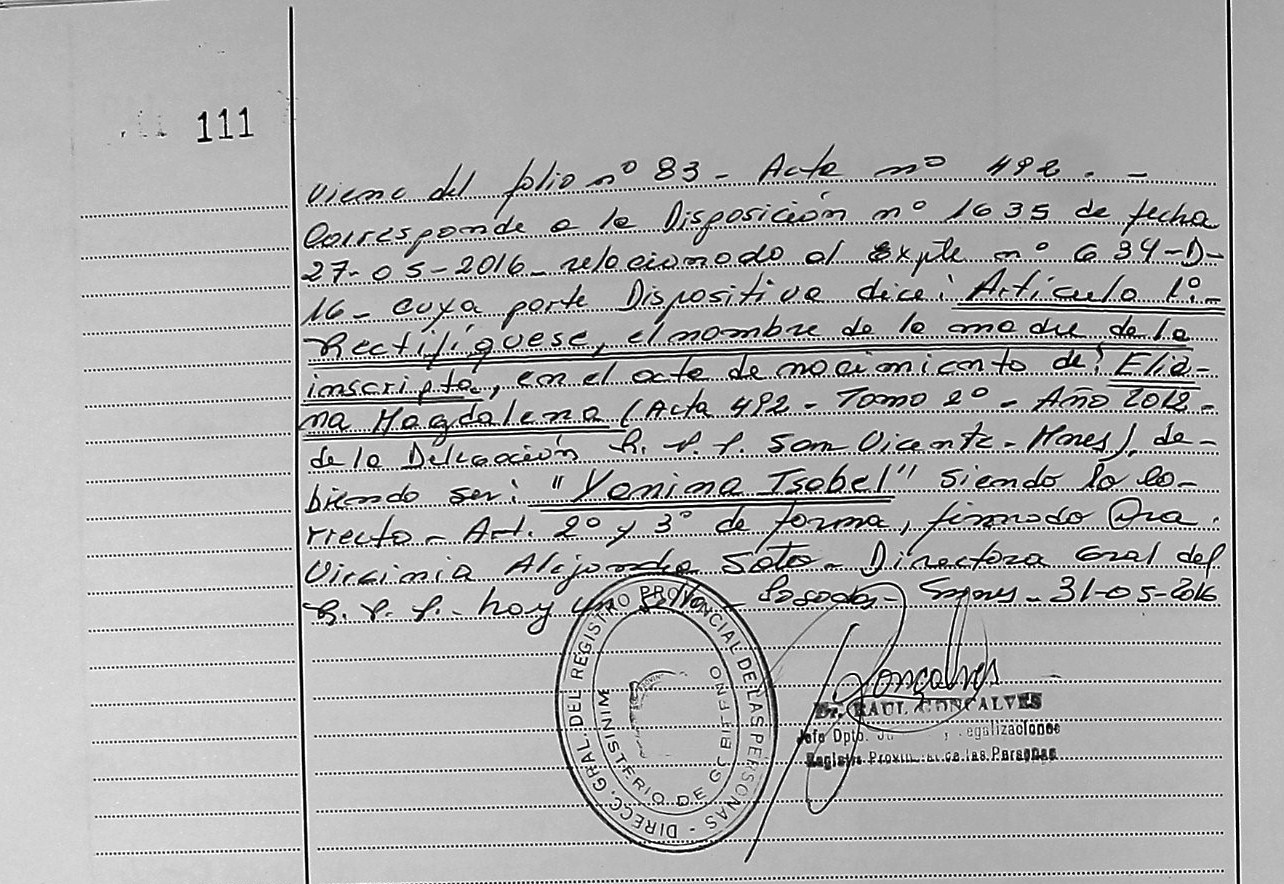 111
Viene del folio nº 83 - Acta nº 492. -
Corresponde a la Disposición nº 1635 de fecha
27-05-2016 - relacionado al Expte nº 634-D-
16 - cuya parte Dispositiva dice: Artículo 1º.-
Rectifíquese, el nombre de la madre de la
inscripta, en el acta de nacimiento de: Elia-
na Magdalena (Acta 492 - Tomo 2º - Año 2012 -
de la Delegación R. P. P. San Vicente - Mnes), de-
biendo ser: "Yanina Isabel" siendo lo co-
rrecto - Art. 2º y 3º de forma, firmado Dra.
Virginia Alejandra Soto - Directora Gral del
R. P. P. - hoy - Posadas - Mnes - 31-05-2016
DIRECC. GRAL. DEL REGISTRO PROVINCIAL DE LAS PERSONAS -
MINISTERIO DE GOBIERNO
Goncalves
Dr. RAUL GONCALVES
Jefe Dpto. egalizaciones
Registro Provincial de las Personas